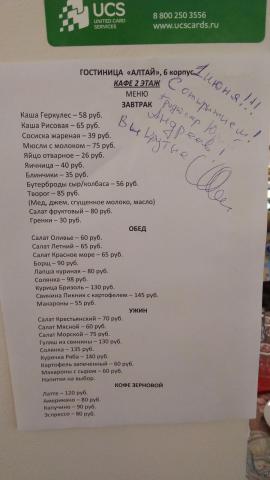 UCS
UNITED CARD
SERVICES
8 800 250 3556
www.ucscards.ru
ГОСТИНИЦА «АЛТАЙ», 6 корпус
КАФЕ 2 ЭТАЖ
МЕНЮ
ЗАВТРАК
Каша Геркулес – 58 руб.
Каша Рисовая – 65 руб.
Сосиска жареная – 39 руб.
Мюсли с молоком – 75 руб.
Яйцо отварное – 26 руб.
Яичница – 40 руб.
Блинчики – 35 руб.
Бутерброды сыр/колбаса – 56 руб.
Творог – 85 руб.
(Мед, джем, сгущенное молоко, масло)
Салат фруктовый – 80 руб.
Гренки – 30 руб.
1 июня!!!
С открытием!
Андреев!
Вы крутые
ОБЕД
Салат Оливье – 60 руб.
Салат Летний – 65 руб.
Салат Красное море – 65 руб.
Борщ – 90 руб.
Лапша куриная – 80 руб.
Солянка – 98 руб.
Курица Бризоль – 130 руб.
Свинина Пикник с картофелем – 145 руб.
Макароны – 55 руб.
УЖИН
Салат Крестьянский – 70 руб.
Салат Мясной – 60 руб.
Салат Морской – 75 руб.
Гуляш из свинины – 130 руб.
Солянка – 135 руб.
Курочка Ряба – 160 руб.
Картофель запеченный – 60 руб.
Макароны с сыром – 60 руб.
Напитки на выбор.
КОФЕ ЗЕРНОВОЙ
Латте – 120 руб.
Американо – 80 руб.
Капучино – 90 руб.
Эспрессо – 80 руб.